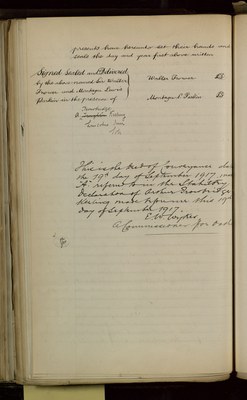 presents have hereunto set their hands and
seals the day and year first above written
Signed Sealed and Delivered
by the above named Sir Walter
Prowse and Montagu Lewis
Parker in the presence of
Walter Prowse LS
Montagu L Parker LS
Lincolns Inn
This is the deed of Conveyance dated
the 19th day of September 1917
"A" referred to in the Statutory
Declaration of Arthur
Keeling made before me this 19th
day of September 1917
A Commissioner for Oaths